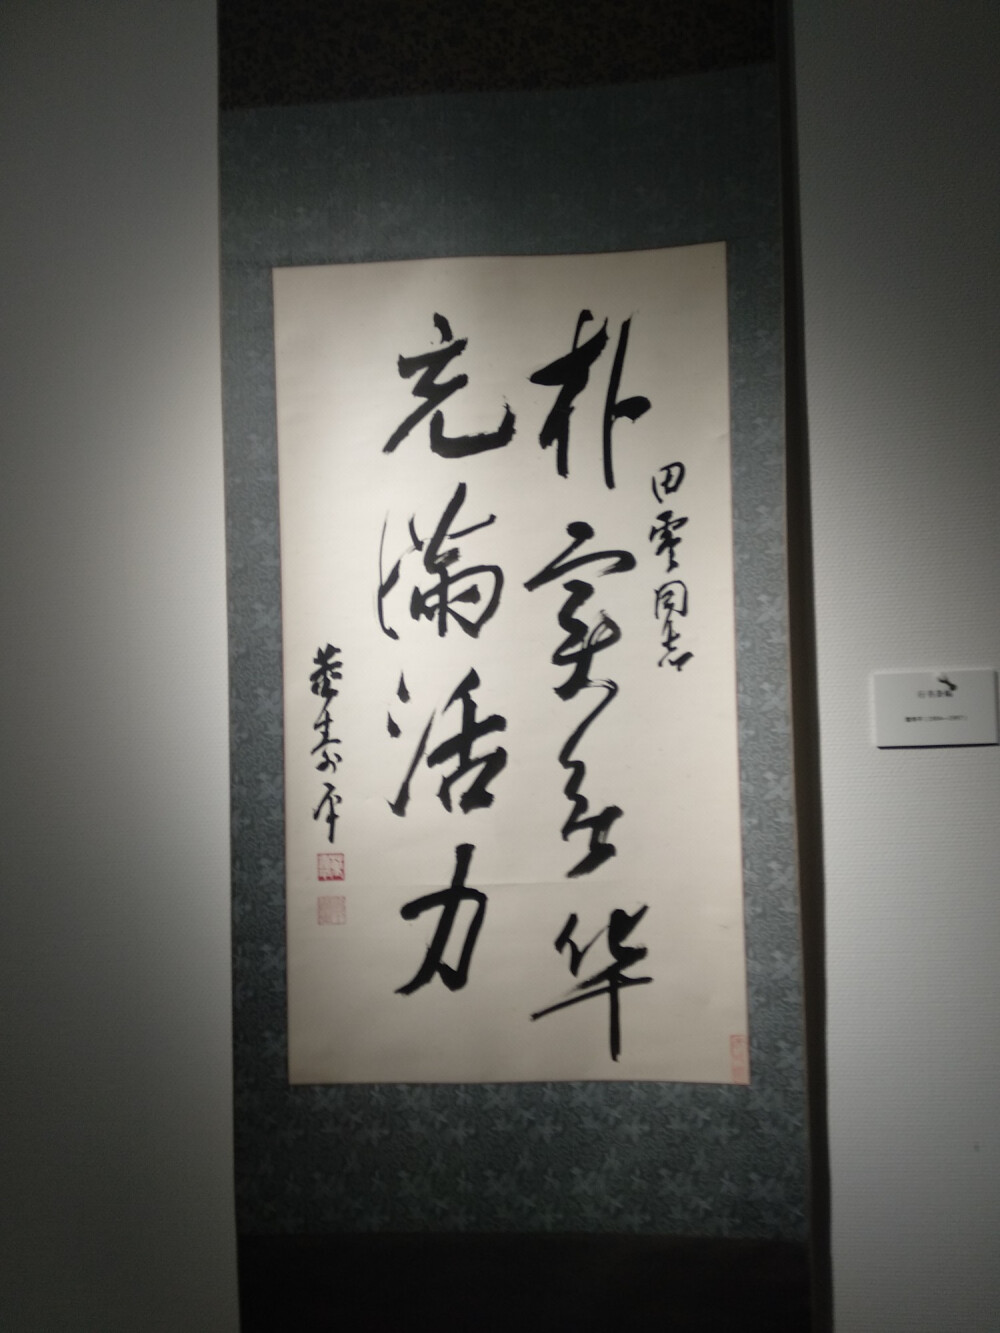 田雲同志
朴实无华
充满活力
董寿平